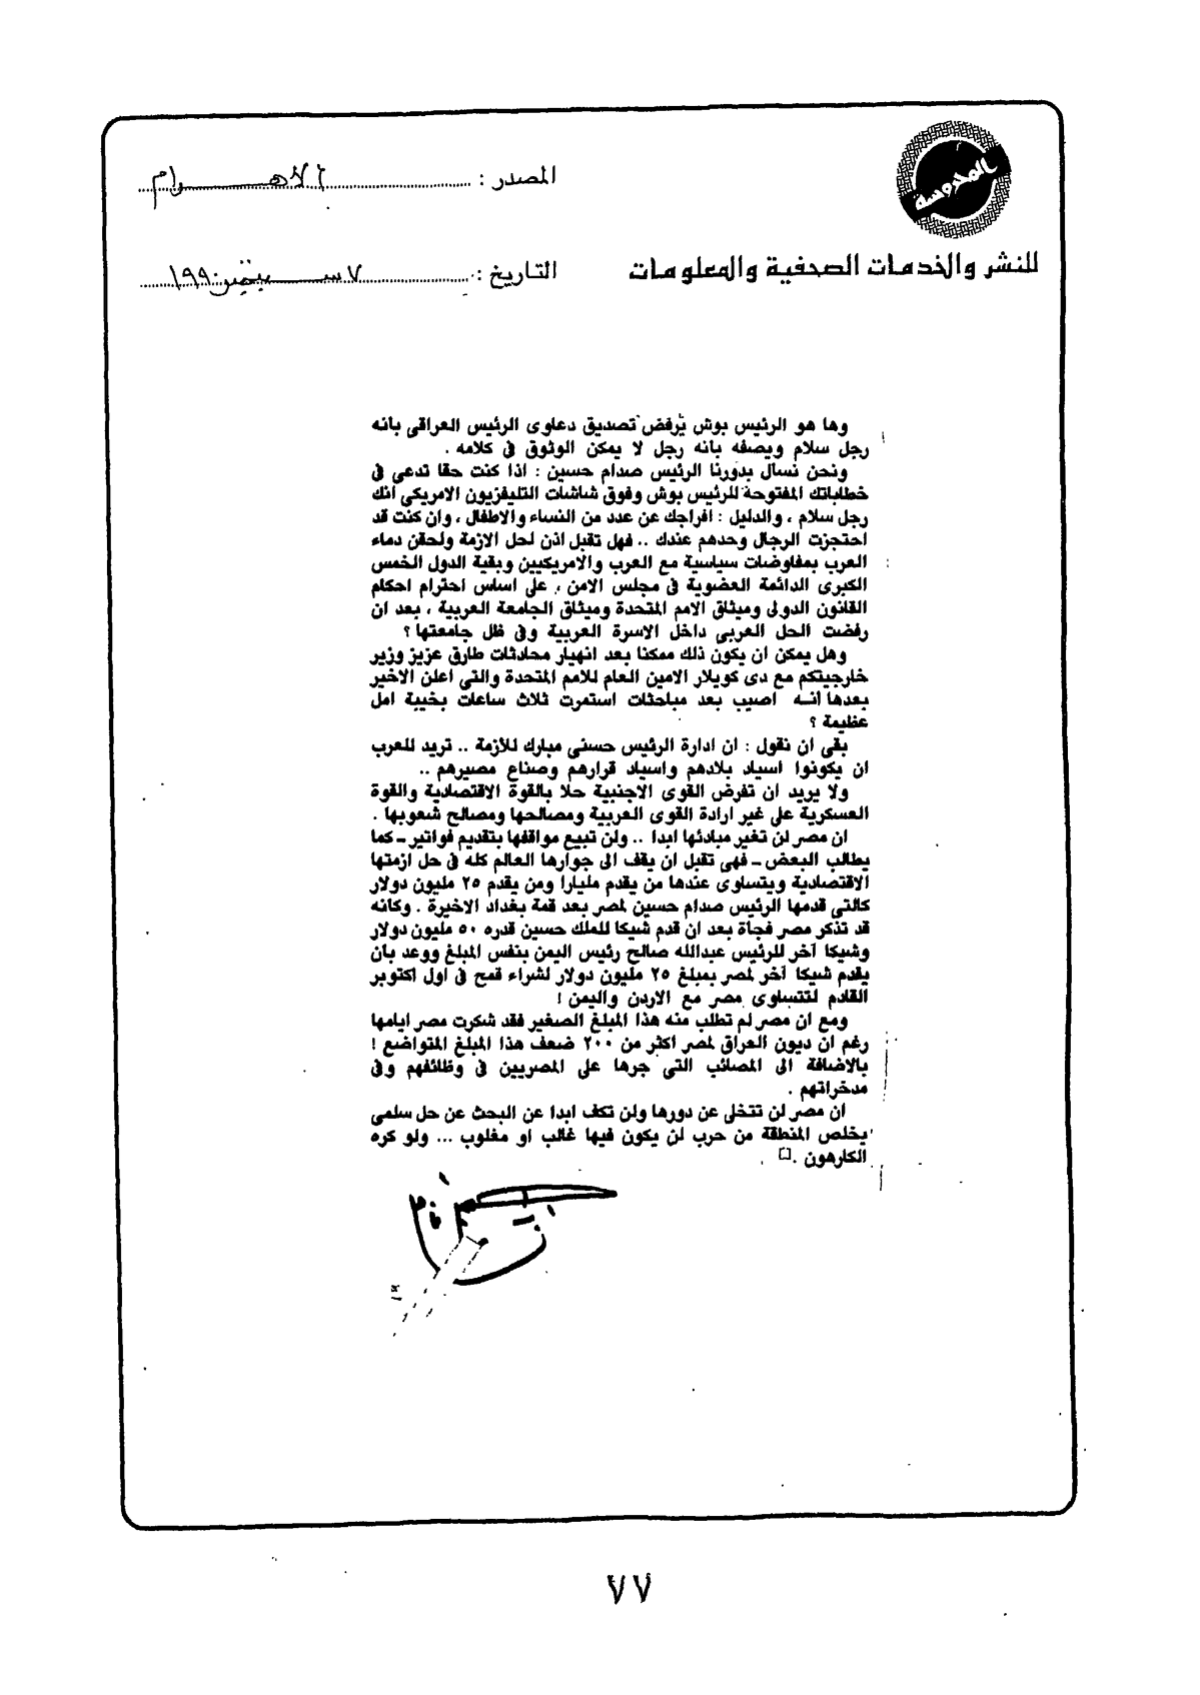 المحروسة
المصدر : الأهرام
للنشر والخدمات الصحفية والمعلومات
التاريخ : ٧ سبتمبر ١٩٩٠
وها هو الرئيس بوش يرفض تصديق دعاوى الرئيس العراقى بانه
رجل سلام ويصفه بانه رجل لا يمكن الوثوق فى كلامه .
ونحن نسال بدورنا الرئيس صدام حسين : اذا كنت حقا تدعى فى
خطاباتك المفتوحة للرئيس بوش وفوق شاشات التليفزيون الامريكى انك
رجل سلام ، والدليل : افراجك عن عدد من النساء والاطفال ، وان كنت قد
احتجزت الرجال وحدهم عندك .. فهل تقبل اذن لحل الازمة ولحقن دماء
العرب بمفاوضات سياسية مع العرب والامريكيين وبقية الدول الخمس
الكبرى الدائمة العضوية فى مجلس الامن ، على اساس احترام احكام
القانون الدولى وميثاق الامم المتحدة وميثاق الجامعة العربية ، بعد ان
رفضت الحل العربى داخل الاسرة العربية وفى ظل جامعتها ؟
وهل يمكن ان يكون ذلك ممكنا بعد انهيار محادثات طارق عزيز وزير
خارجيتكم مع دى كويلار الامين العام للامم المتحدة والتى اعلن الاخير
بعدها انه اصيب بعد مباحثات استمرت ثلاث ساعات بخيبة امل
عظيمة ؟
بقى ان نقول : ان ادارة الرئيس حسنى مبارك للازمة .. تريد للعرب
ان يكونوا اسياد بلادهم واسياد قرارهم وصناع مصيرهم ..
ولا يريد ان تفرض القوى الاجنبية حلا بالقوة الاقتصادية والقوة
العسكرية على غير ارادة القوى العربية ومصالحها ومصالح شعوبها .
ان مصر لن تغير مبادئها ابدا .. ولن تبيع مواقفها بتقديم فواتير ـ كما
يطالب البعض ـ فهى تقبل ان يقف الى جوارها العالم كله فى حل ازمتها
الاقتصادية ويتساوى عندها من يقدم مليارا ومن يقدم ٢٥ مليون دولار
كالتى قدمها الرئيس صدام حسين لمصر بعد قمة بغداد الاخيرة . وكانه
قد تذكر مصر فجاة بعد ان قدم شيكا للملك حسين قدره ٥٠ مليون دولار
وشيكا آخر للرئيس عبدالله صالح رئيس اليمن بنفس المبلغ ووعد بان
يقدم شيكا آخر لمصر بمبلغ ٢٥ مليون دولار لشراء قمح فى اول اكتوبر
القادم لتتساوى مصر مع الاردن واليمن !
ومع ان مصر لم تطلب منه هذا المبلغ الصغير فقد شكرت مصر ايامها
رغم ان ديون العراق لمصر اكثر من ٢٠٠ ضعف هذا المبلغ المتواضع !
بالاضافة الى المصائب التى جرها على المصريين فى وظائفهم وفى
مدخراتهم .
ان مصر لن تتخلى عن دورها ولن تكف ابدا عن البحث عن حل سلمى
يخلص المنطقة من حرب لن يكون فيها غالب او مغلوب ... ولو كره
الكارهون .
٧٧